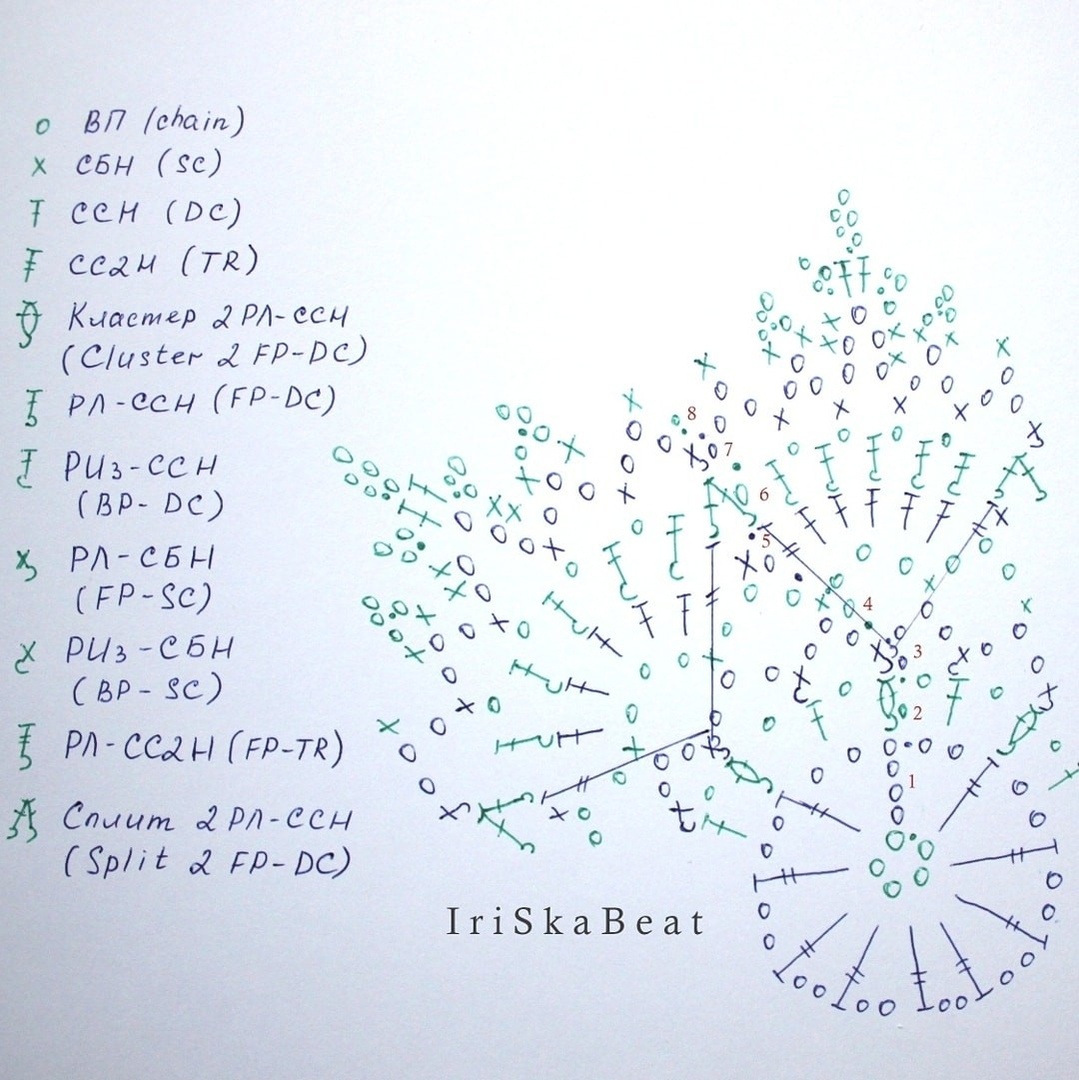 ВП (chain)
СБН (SC)
ССН (DC)
СС2Н (TR)
Кластер 2РЛ-ССН
(Cluster 2 FP-DC)
РЛ-ССН (FP-DC)
РИз-ССН
(BP-DC)
РЛ-СБН
(FP-SC)
РИз-СБН
(BP-SC)
РЛ-СС2Н (FP-TR)
Сплит 2РЛ-ССН
(Split 2 FP-DC)
8
7
6
5
4
3
2
1
IriSkaBeat